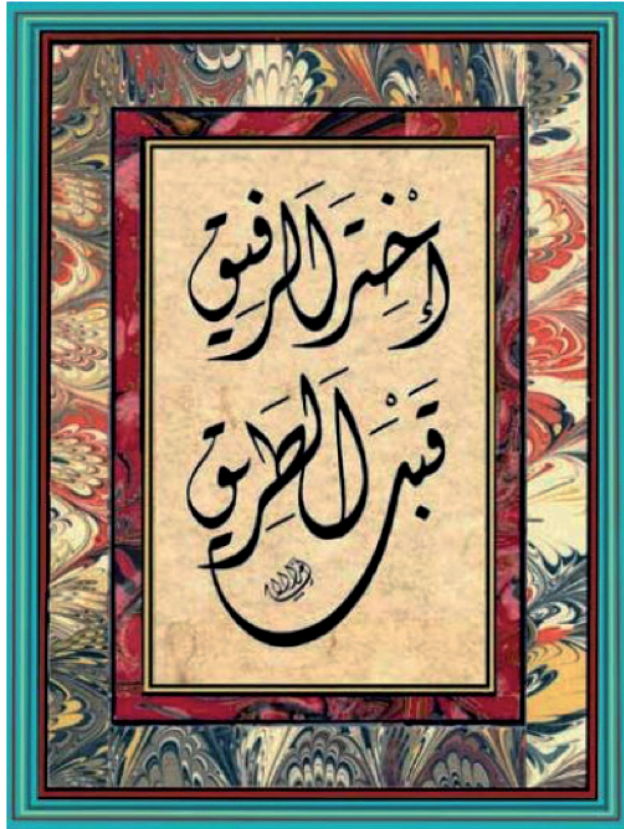 إخْتَر الَرفيق
قَبْل الَطَرِيق